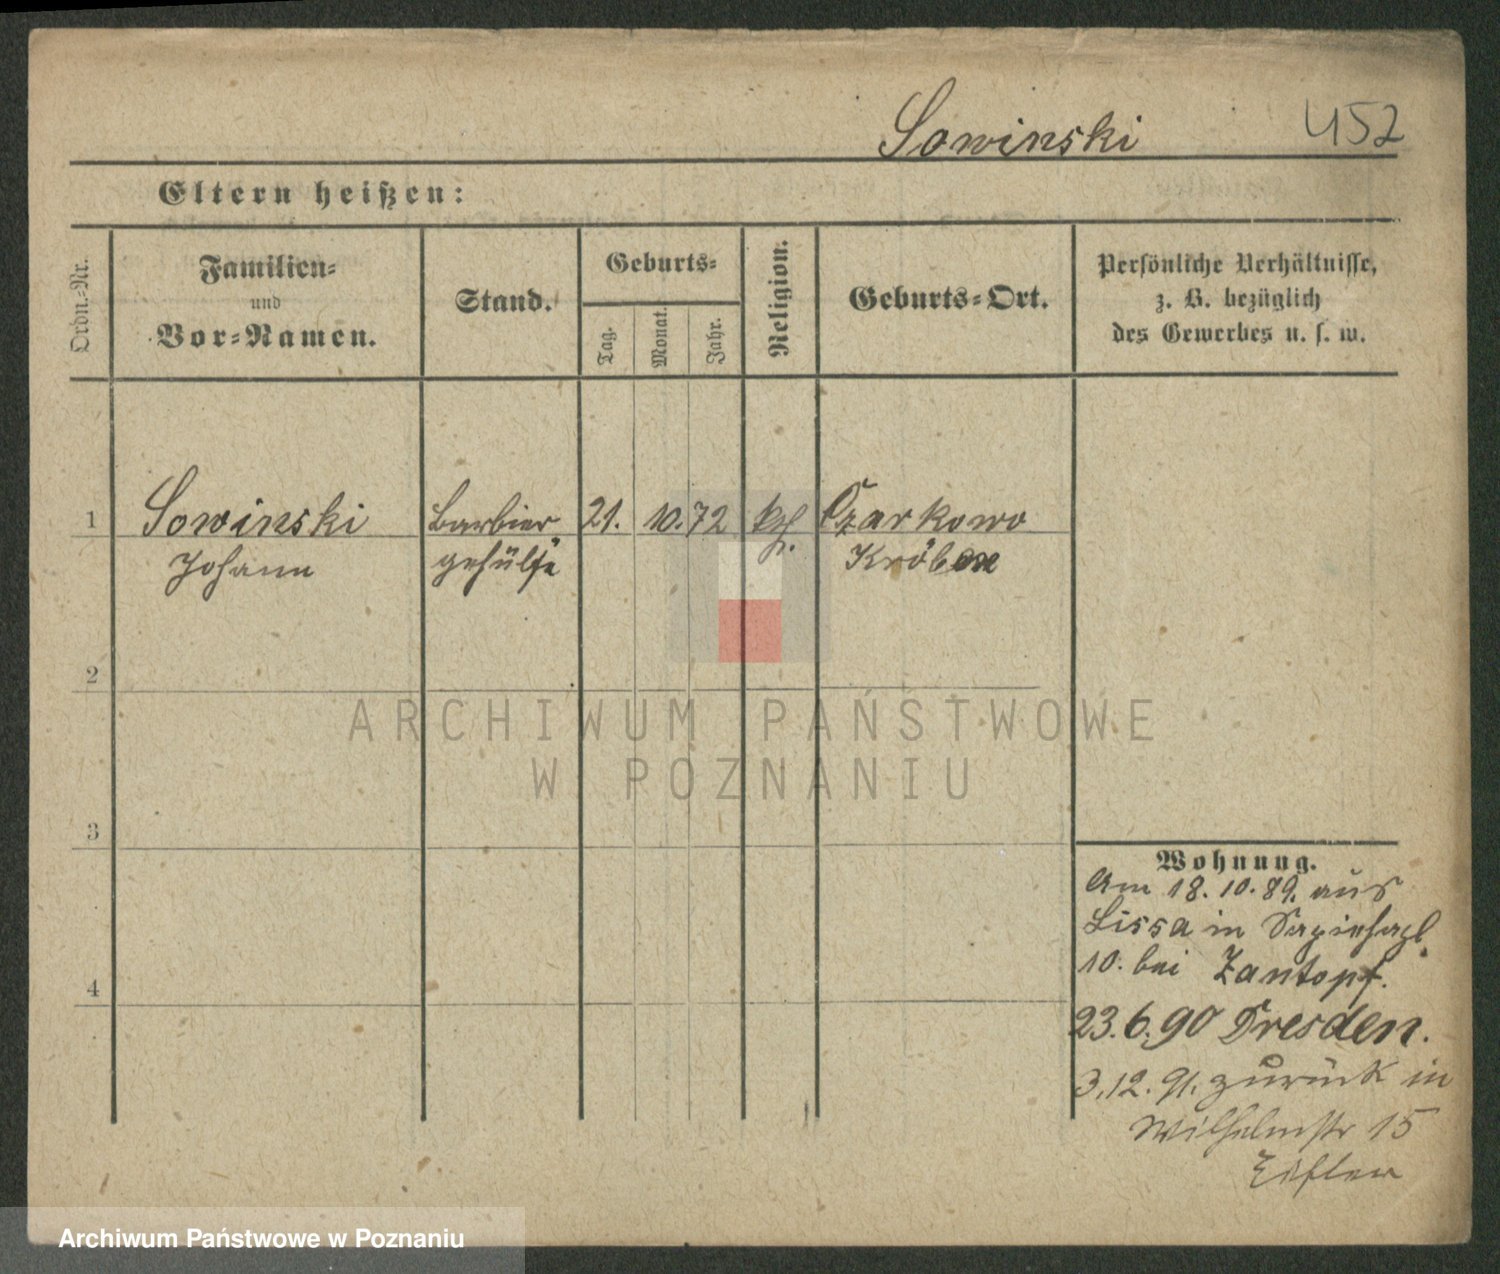 Sowinski 452
Eltern heißen:
Ordn.-Nr.
Familien-
und
Vor-Namen.
Stand.
Geburts-
Tag.
Monat.
Jahr.
Religion.
Geburts-Ort.
Persönliche Verhältnisse,
z. B. bezüglich
des Gewerbes u. s. w.
1 Sowinski Barbier 21. 10. 72 kth. Czarkowo
Johann gehülfe Kröben
2
3
4
Wohnung.
Am 18.10.89. aus
Lissa in Sapiehapl.
10. bei Zantopf.
23.6.90 Dresden.
3.12.91. zurück in
Wilhelmstr 15
ARCHIWUM PAŃSTWOWE
W POZNANIU
Archiwum Państwowe w Poznaniu